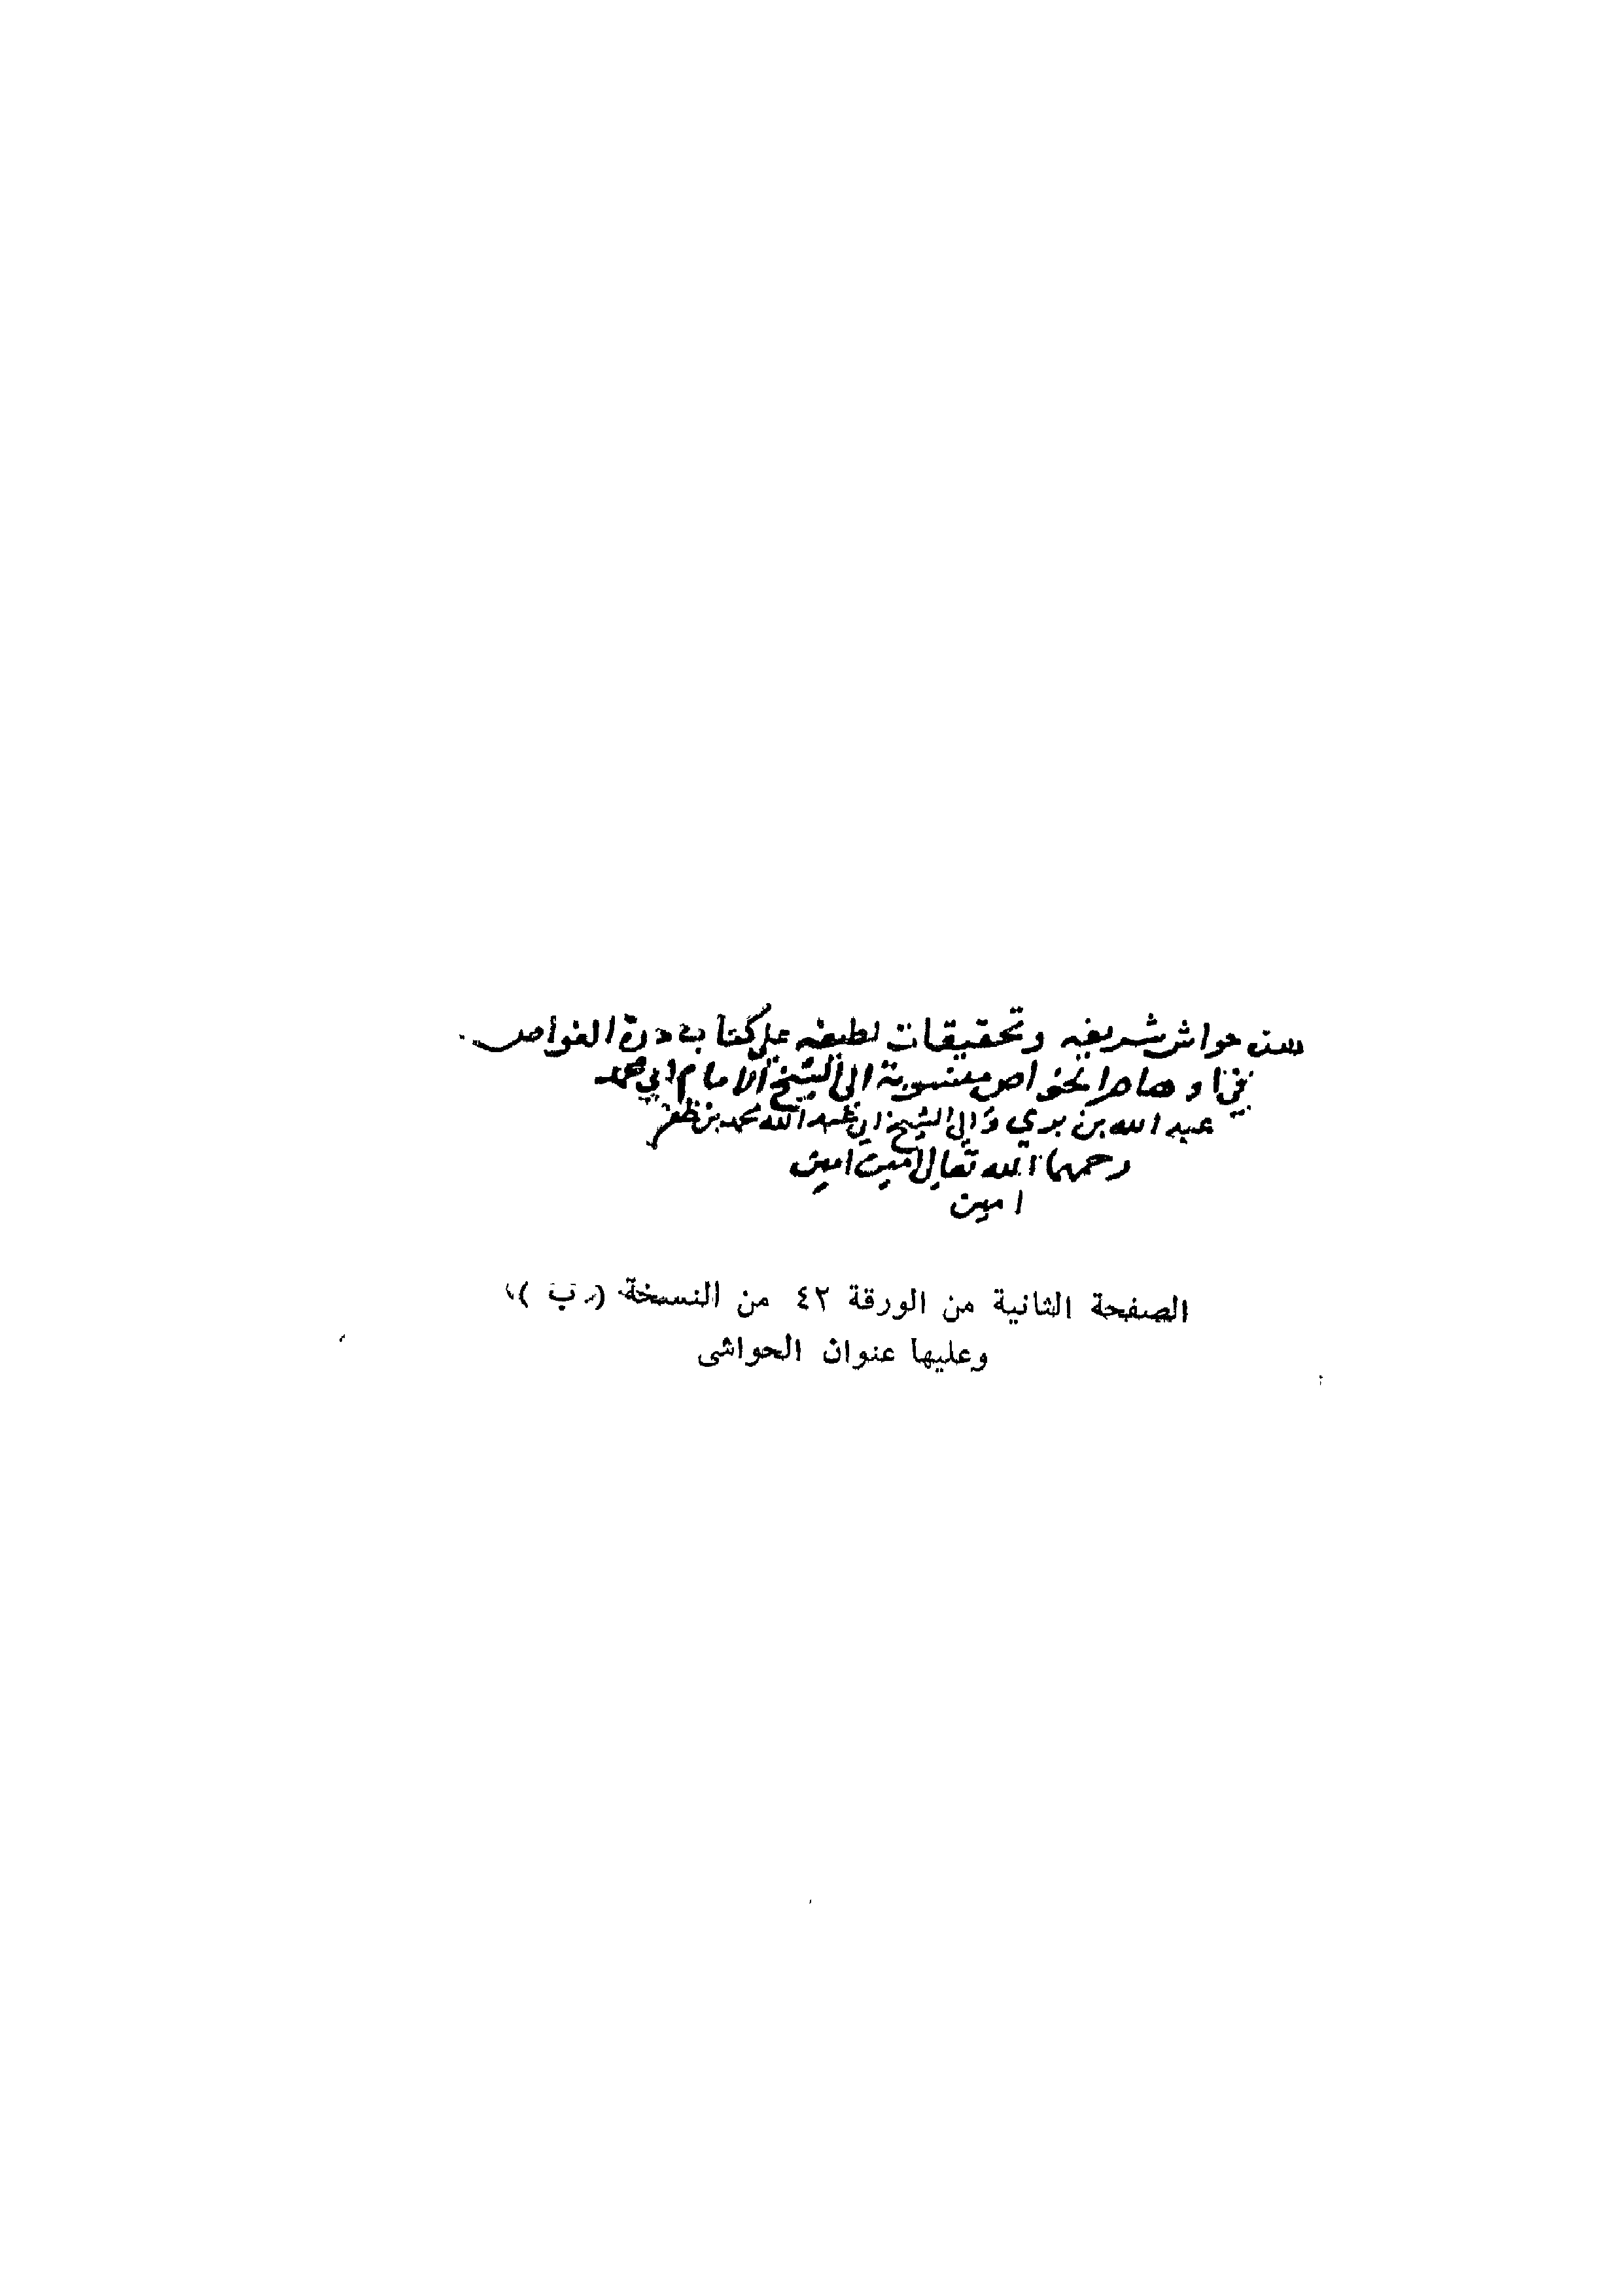 حواش شريفه وتحقيقات لطيفه على كتاب درة الغواص
في اوهام الخواص منسوبة الى الشيخ الامام ابي محمد
عبد الله بن بري والى الشيخ ابي عبد الله محمد بن ظفر
رحمهما الله تعالى امين امين
امين
الصفحة الثانية من الورقة ٤٢ من النسخة ( ب )
وعليها عنوان الحواشى